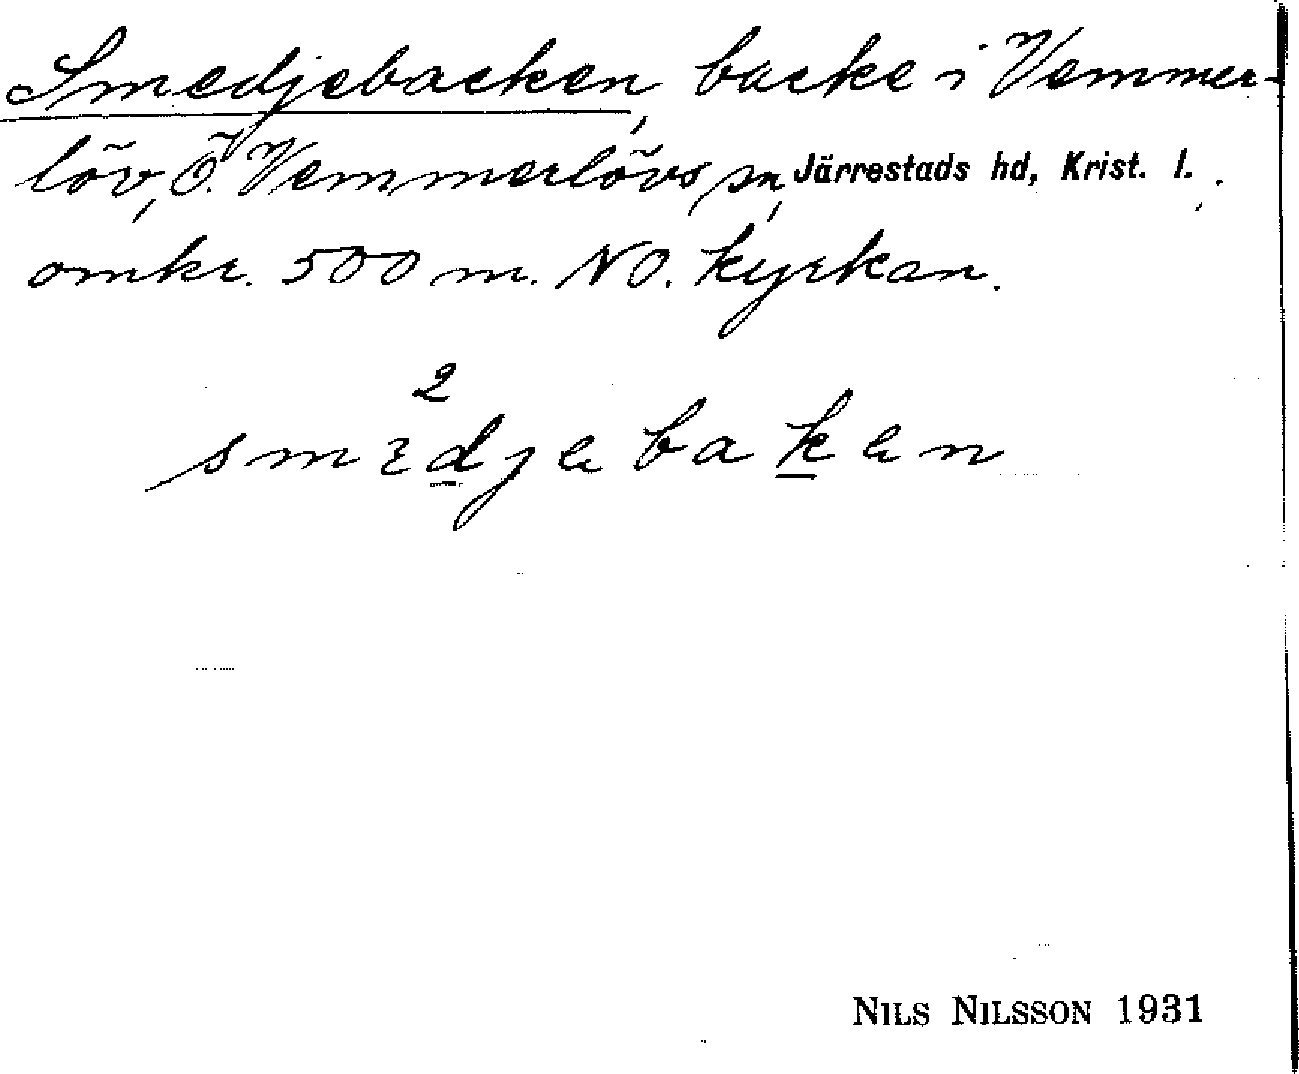 Smedjebacken, backe i Vemmer-
löv, Ö. Vemmerlövs sn, Järrestads hd, Krist. l.,
omkr. 500 m. NO. kyrkan.
2
smɛdjebaken
NILS NILSSON 1931